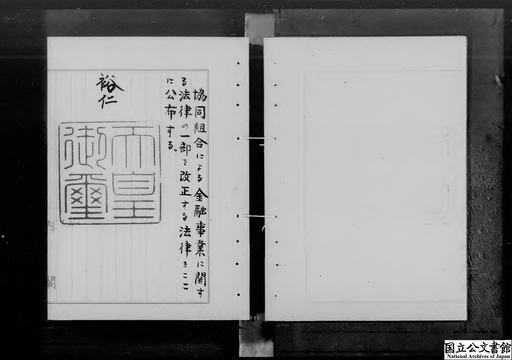 協同組合による金融事業に関す
る法律の一部を改正する法律をここ
に公布する。
裕仁
天皇
御璽
国立公文書館
National Archives of Japan